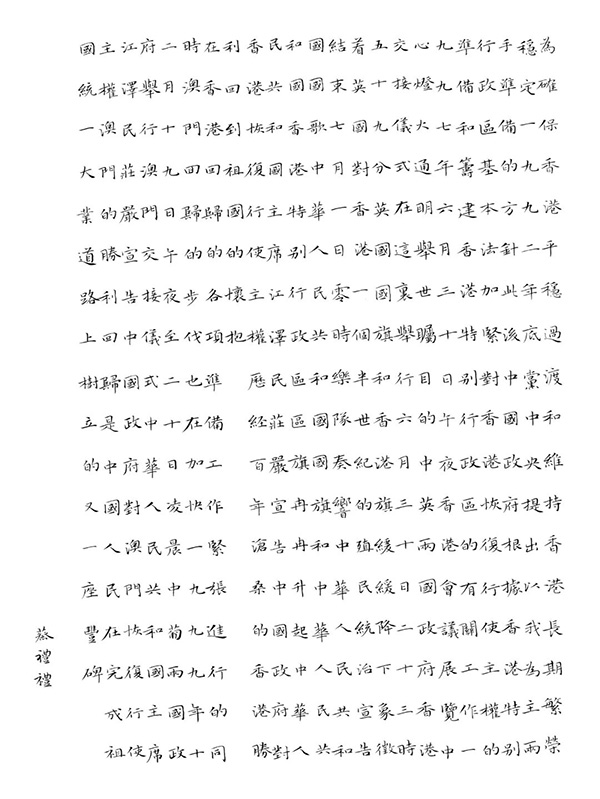 為確保香港平穩過渡和維持香港長期繁榮
穩定一九九二年底黨中央提出以我為主兩
手準備的方針此該中國政府根據香港特別
行政區基本法加緊對香港恢復行使主權的
準備和籌建香港特別行政區的有關工作一
九九七年六月三十日午夜香港會議展覽中
心燈火通明舉世矚目的中英兩國政府香港
交接儀式在這裏舉行六月三十日二十三時
五十九分英國國旗和香港旗緩緩降下象徵
着英國對香港一個半世紀的殖民統治宣告
結束七月一日零時樂隊奏響中華人民共和
國國歌中華人民共和國國旗和中華人民共
和國香港特別行政區區旗冉冉升起中華人
民共和國主席江澤民莊嚴宣告中國政府對
香港恢復行使主權歷經百年滄桑的香港勝
利回到祖國的懷抱
在香港回歸的各項準備工作緊張進行的同
時澳門回歸的步伐也在加快一九九九年十
二月十九日午夜至二十日凌晨中葡兩國政
府舉行澳門交接儀式中華人民共和國主席
江澤民莊嚴宣告中國政府對澳門恢復行使
主權澳門的勝利回歸是中國人民在完成祖
國統一大業道路上樹立的又一座豐碑
蔡禮禮